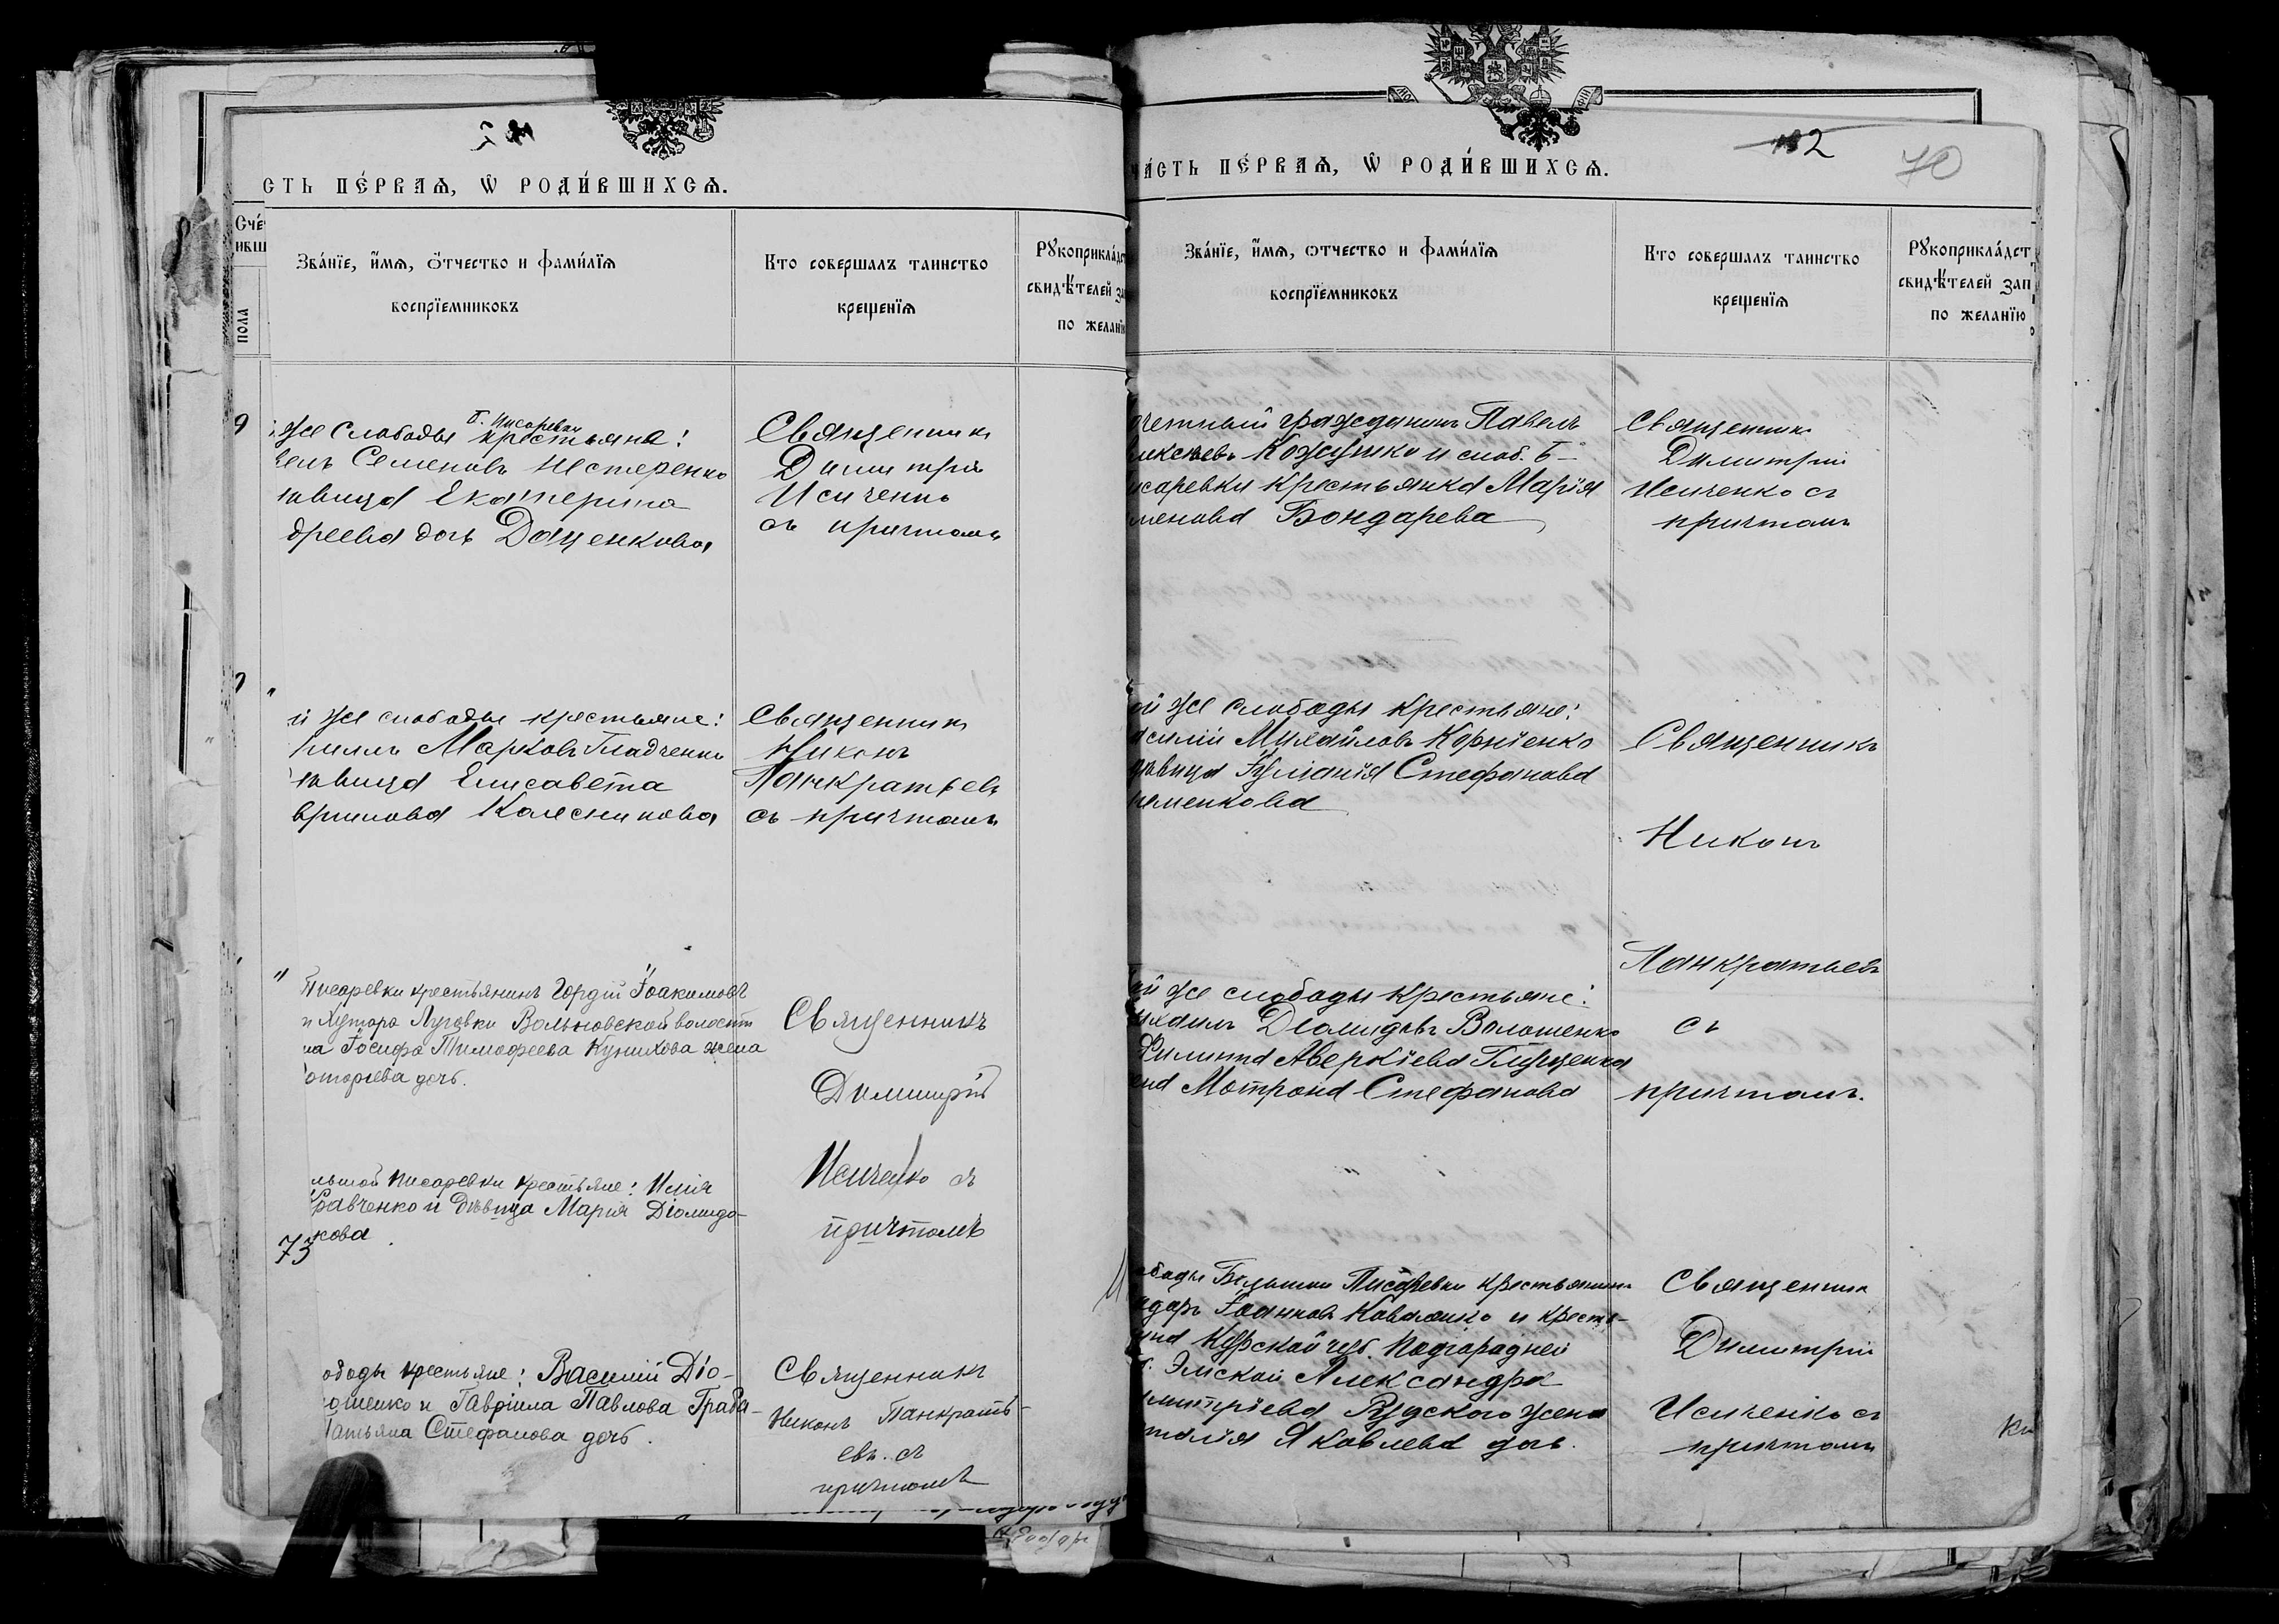 СТЬ ПЕ́РВАѦ, Ѡ҆ РОДИ́ВШИХСѦ.
Сче́
ивш
пола
Зва́нїе, и҆́мѧ, ѻ҆́тчество и фами́лїѧ
воспрїемниковъ
Кто совершалъ таинство
крещенїѧ
Рꙋкоприкла́дст
свидѣтелей за
по желанїю
9
же слободы крестьяне:
Б. Писаревки
Семеновъ Нестеренко
Екатерина
дреева дочь Доценкова
Священникъ
Димитрій
Исиченко
съ причтомъ
й же слободы крестьяне:
иилъ Марковъ Гладченко
ѣвица Елисавета
вриилова Колесникова
Священникъ
Никонъ
Панкратьевъ
съ причтомъ
Писаревки крестьянинъ Гордій Іоакимовъ
и хутора Луговки Вольновской волости
на Іосифа Тимофеева Кунихова жена
дочь.
Священникъ
Димитрій
Исиченко съ
причтомъ
льшой Писаревки крестьяне: Илія
Кравченко и дѣвица Марія Діомидо-
кова
73
ободы крестьяне: Василій Діо-
ошенко и Гавріила Павлова
Татьяна Стефанова дочь.
Священникъ
Никонъ Панкрать-
евъ съ
причтомъ
ЧА́СТЬ ПЕ́РВАѦ, Ѡ҆ РОДИ́ВШИХСѦ.
2
70
Зва́нїе, и҆́мѧ, ѻтчество и фами́лїѧ
воспрїемниковъ
Кто совершалъ таинство
крещенїѧ
Рꙋкоприкла́дст
свидѣтелей зап
по желанїю
очетный гражданинъ Павелъ
лексѣевъ Кожушко и слоб. Б-
исаревки крестьянка Марія
меновa Бондарева
Священникъ
Димитрій
Исиченко съ
причтомъ
ой же слободы крестьяне:
асилій Михайловъ Корніенко
ѣвица Іуліанія Стефанова
Священникъ
Никонъ
Панкратьевъ
съ
причтомъ.
ой же слободы крестьяне:
ихаилъ Діомидовъ Волошенко
Филиппа Аверкіева Глущенка
ена Мотрона Стефанова
ободы Большой Писаревки крестьянинъ
Іоанновъ Коваленко и кресть-
Курской губ. Подгородней
Александра
митріева Рудского жена
талія Яковлева дочь.
Священникъ
Димитрій
Исиченко съ
причтомъ